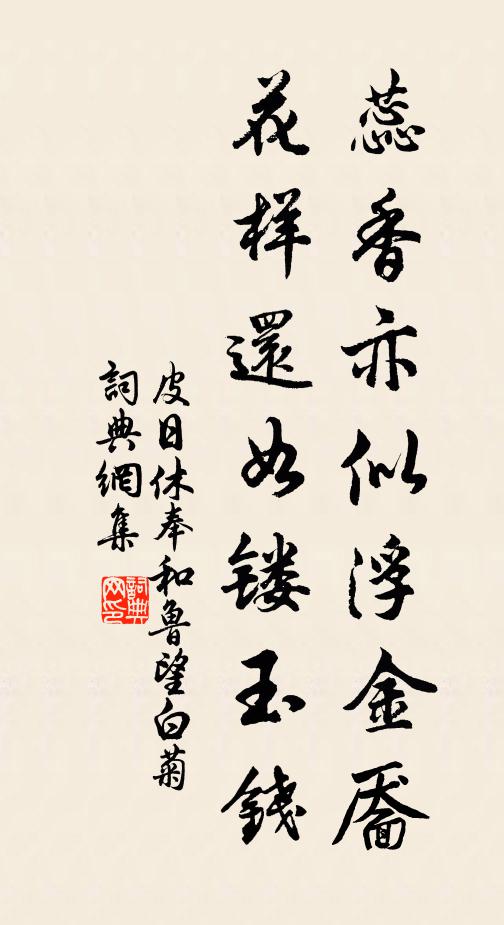 蕊香亦似浮金靨
花样還如镂玉錢
皮日休奉和魯望白菊
詞典網集
詞典网印